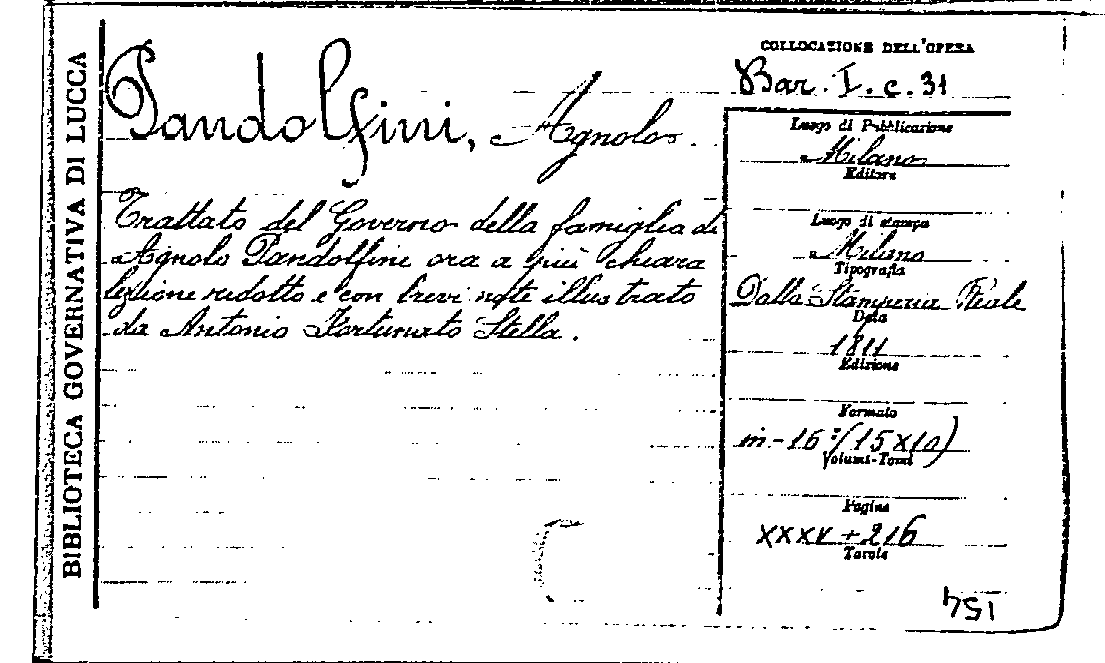 BIBLIOTECA GOVERNATIVA DI LUCCA
Pandolfini, Agnolo.
Trattato del Governo della famiglia di
Agnolo Pandolfini ora a più chiara
lezione ridotto e con brevi note illustrato
da Antonio Fortunato Stella.
COLLOCAZIONE DELL'OPERA
Bar. I. c. 31
Luogo di Pubblicazione
Milano
Editore
Luogo di stampa
Milano
Tipografia
Dalla Stamperia Reale
Data
1811
Edizione
Formato
in-16° (15x10)
Volumi-Tomi
Pagine
XXXV + 216
Tavole
154